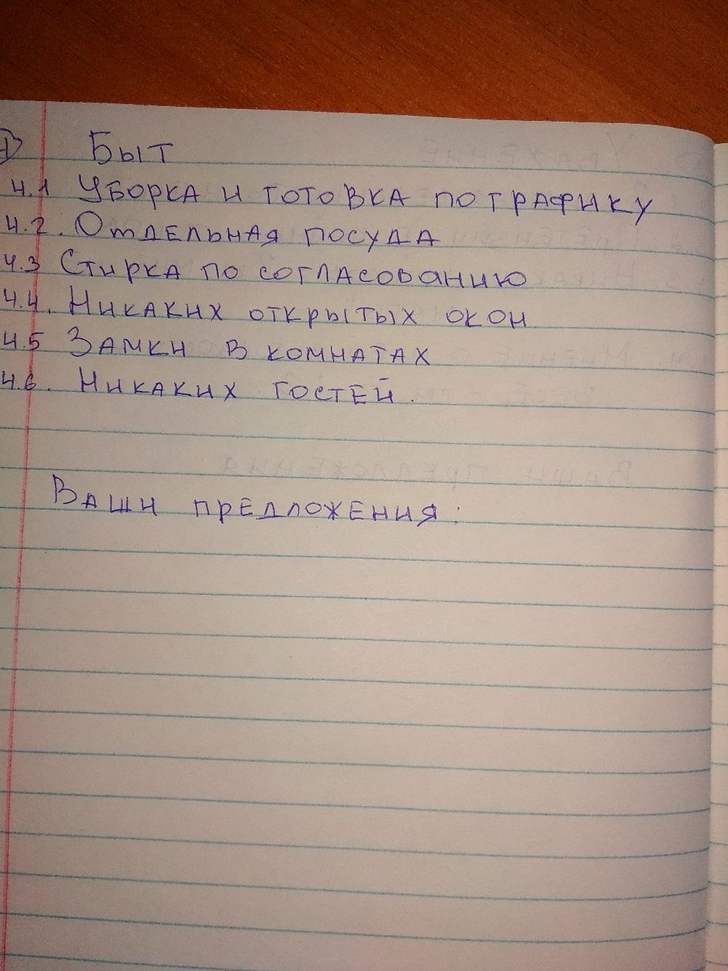 Быт
4.1 Уборка и готовка по графику
4.2. Отдельная посуда
4.3 Стирка по согласованию
4.4. Никаких открытых окон
4.5 Замки в комнатах
4.6. Никаких гостей.
Ваши предложения: